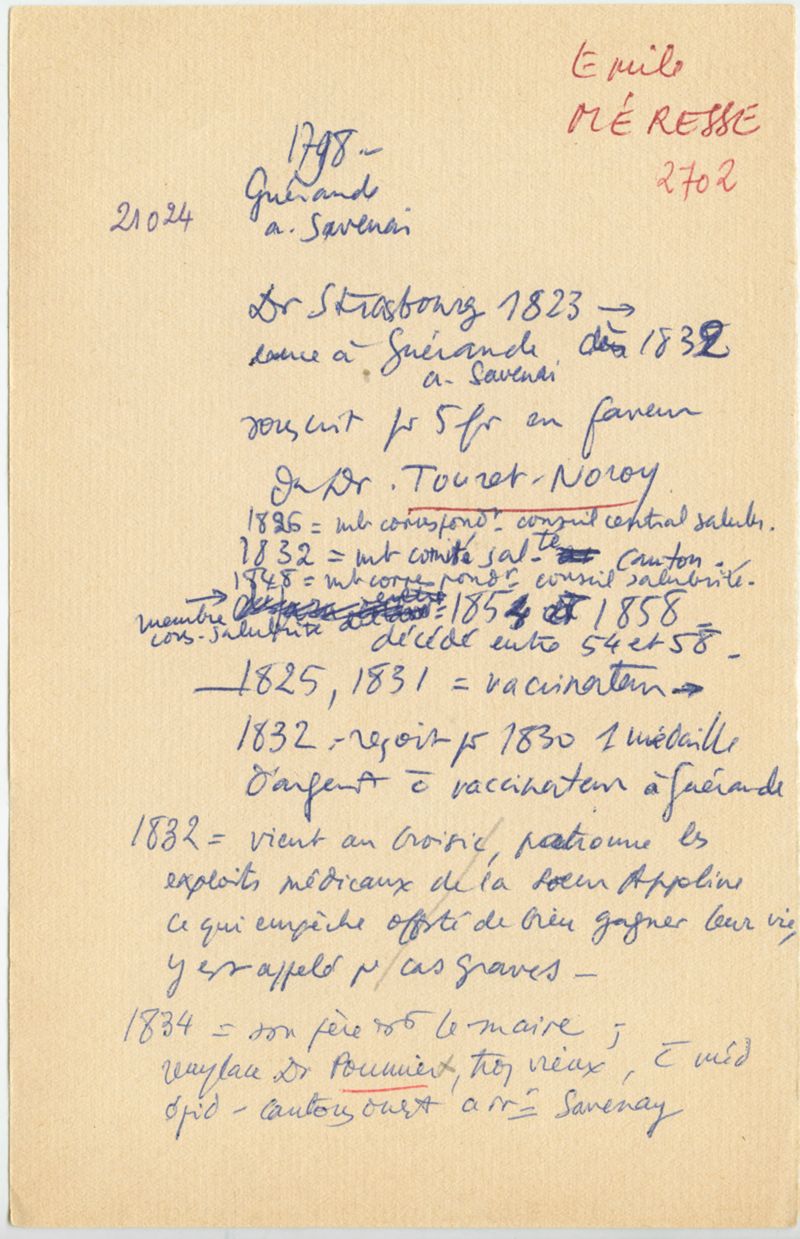 Emile
MÉRESSE
2702
1798 -
Guérande
21024
a. Savenai
Dr Strasbourg 1823 →
à Guérande dès 1832
a. Savenai
souscrit pr 5 fr en faveur
du Dr. Touret-Noroy
1826 = mb correspondt conseil central salub.
1832 = mb comité sal-té canton.
1848 = mb correspondt conseil salubrité.
→ = 1854 et 1858 =
membre
cons-salubrité
décédé entre 54 et 58 -
1825, 1831 = vaccinateur →
1832 - reçoit pr 1830 1 médaille
d'argent c̄ vaccinateur à Guérande
1832 = vient au Croisic, patronne les
exploits médicaux de la soeur Appoline
ce qui empêche offsté de bien gagner leur vie,
y est appelé pr cas graves -
1834 = son père est le maire ;
remplace Dr Poumier, trop vieux, c̄ méd
épid - cantons ouest a rrt Savenay